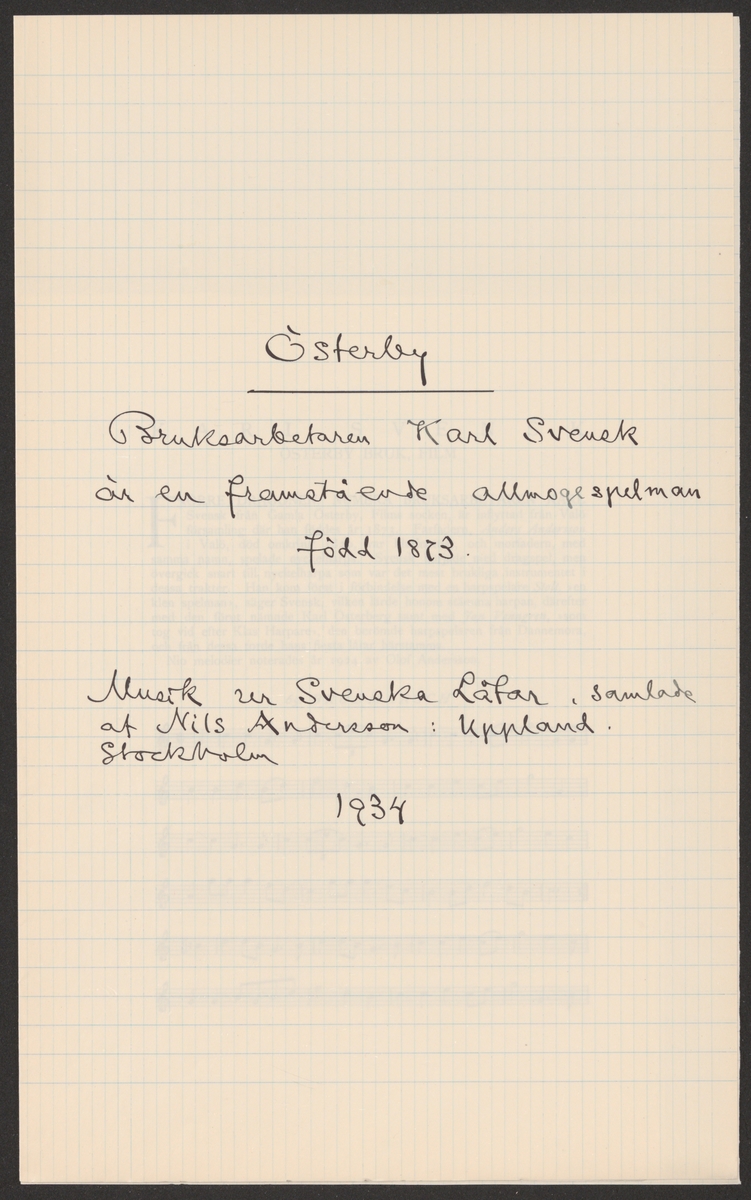 Österby
Bruksarbetaren Karl Svensk
är en framstående allmogespelman
född 1873.
Musik ur Svenska Låtar, samlade
af Nils Andersson : Uppland.
Stockholm
1934